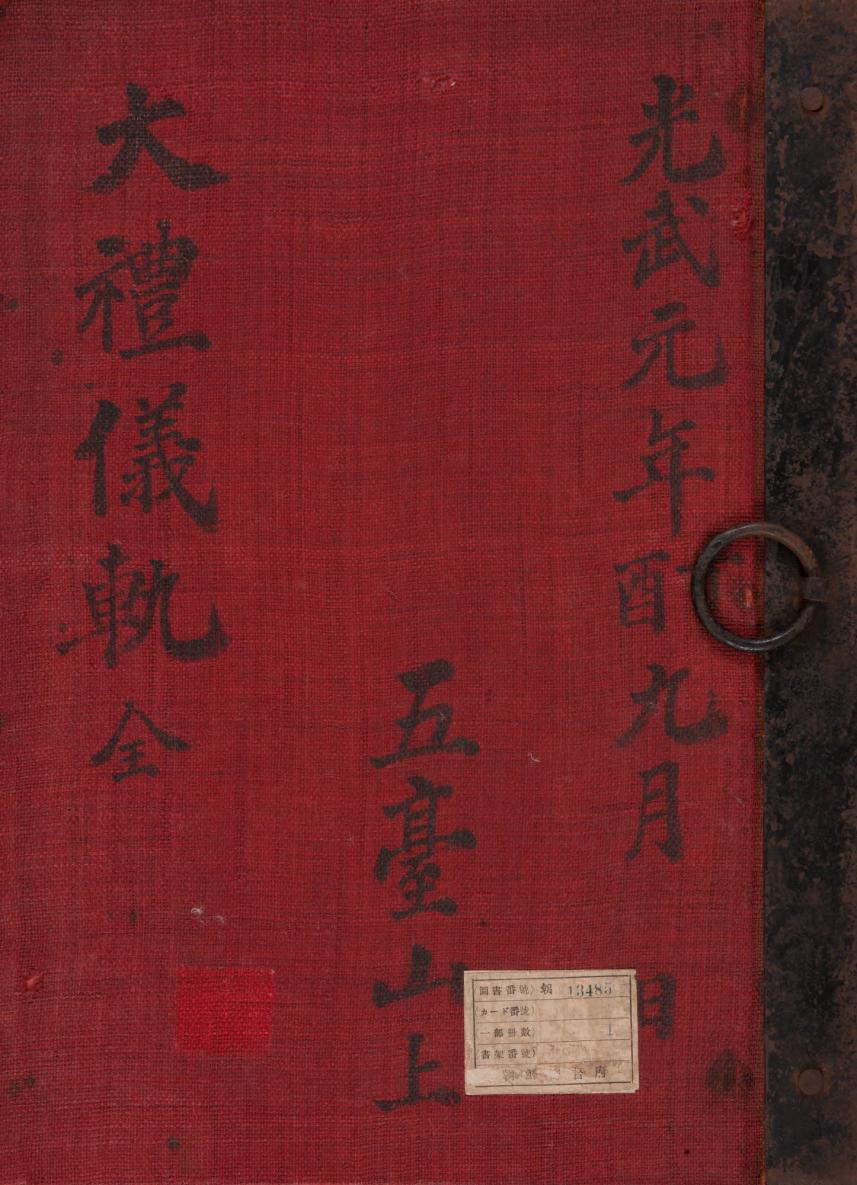 光武元年丁酉九月 日
五臺山上
大禮儀軌 全
圖書番號 朝 13485
カード番號
一部冊數 1
書架番號
府